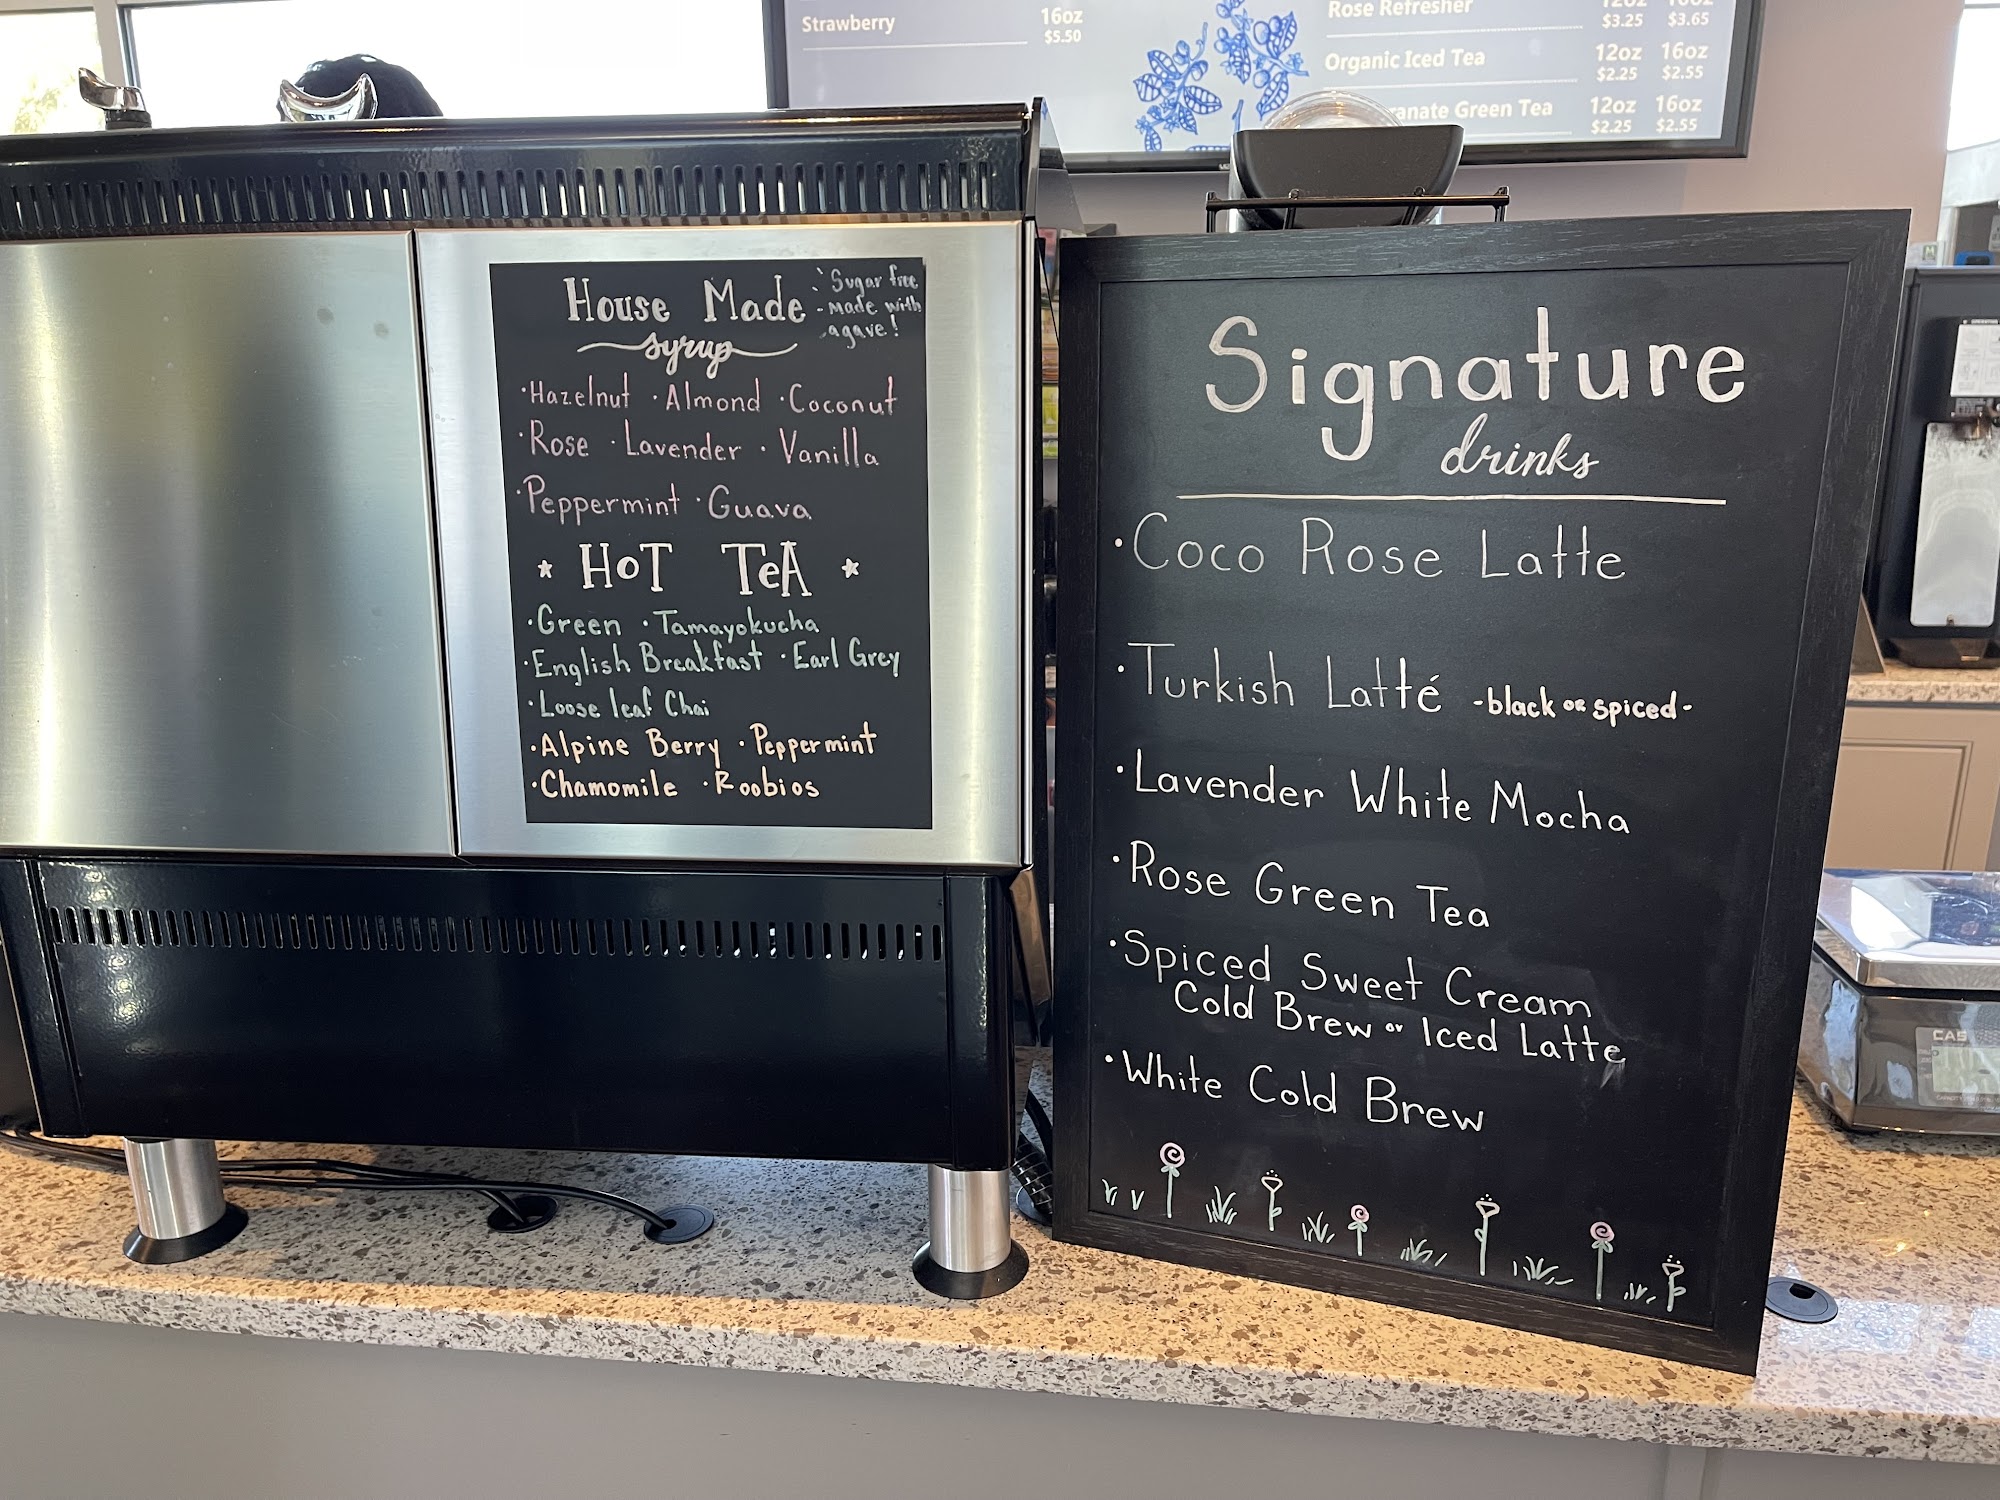 Strawberry 16oz
$5.50
Rose Refresher 12oz 16oz
$3.25 $3.65
Organic Iced Tea 12oz 16oz
$2.25 $2.55
ranate Green Tea 12oz 16oz
$2.25 $2.55
House Made
syrup
Sugar free
- made with
agave!
·Hazelnut ·Almond ·Coconut
·Rose ·Lavender ·Vanilla
·Peppermint ·Guava
* HoT TeA *
·Green ·Tamayokucha
·English Breakfast ·Earl Grey
·Loose leaf Chai
·Alpine Berry ·Peppermint
·Chamomile ·Roobios
Signature
drinks
·Coco Rose Latte
·Turkish Latté -black or spiced-
·Lavender White Mocha
·Rose Green Tea
·Spiced Sweet Cream
Cold Brew or Iced Latte
·White Cold Brew
CAS